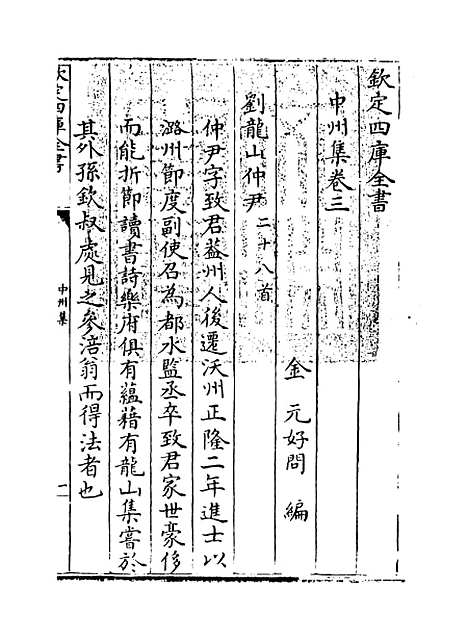 欽定四庫全書
中州集卷三
金 元好問 編
劉龍山仲尹二十八首
仲尹字致君葢州人後遷沃州正隆二年進士以
潞州節度副使召為都水監丞卒致君家世豪侈
而能折節讀書詩樂府俱有蘊藉有龍山集嘗於
其外孫欽叔處見之參涪翁而得法者也
欽定四庫全書
中州集